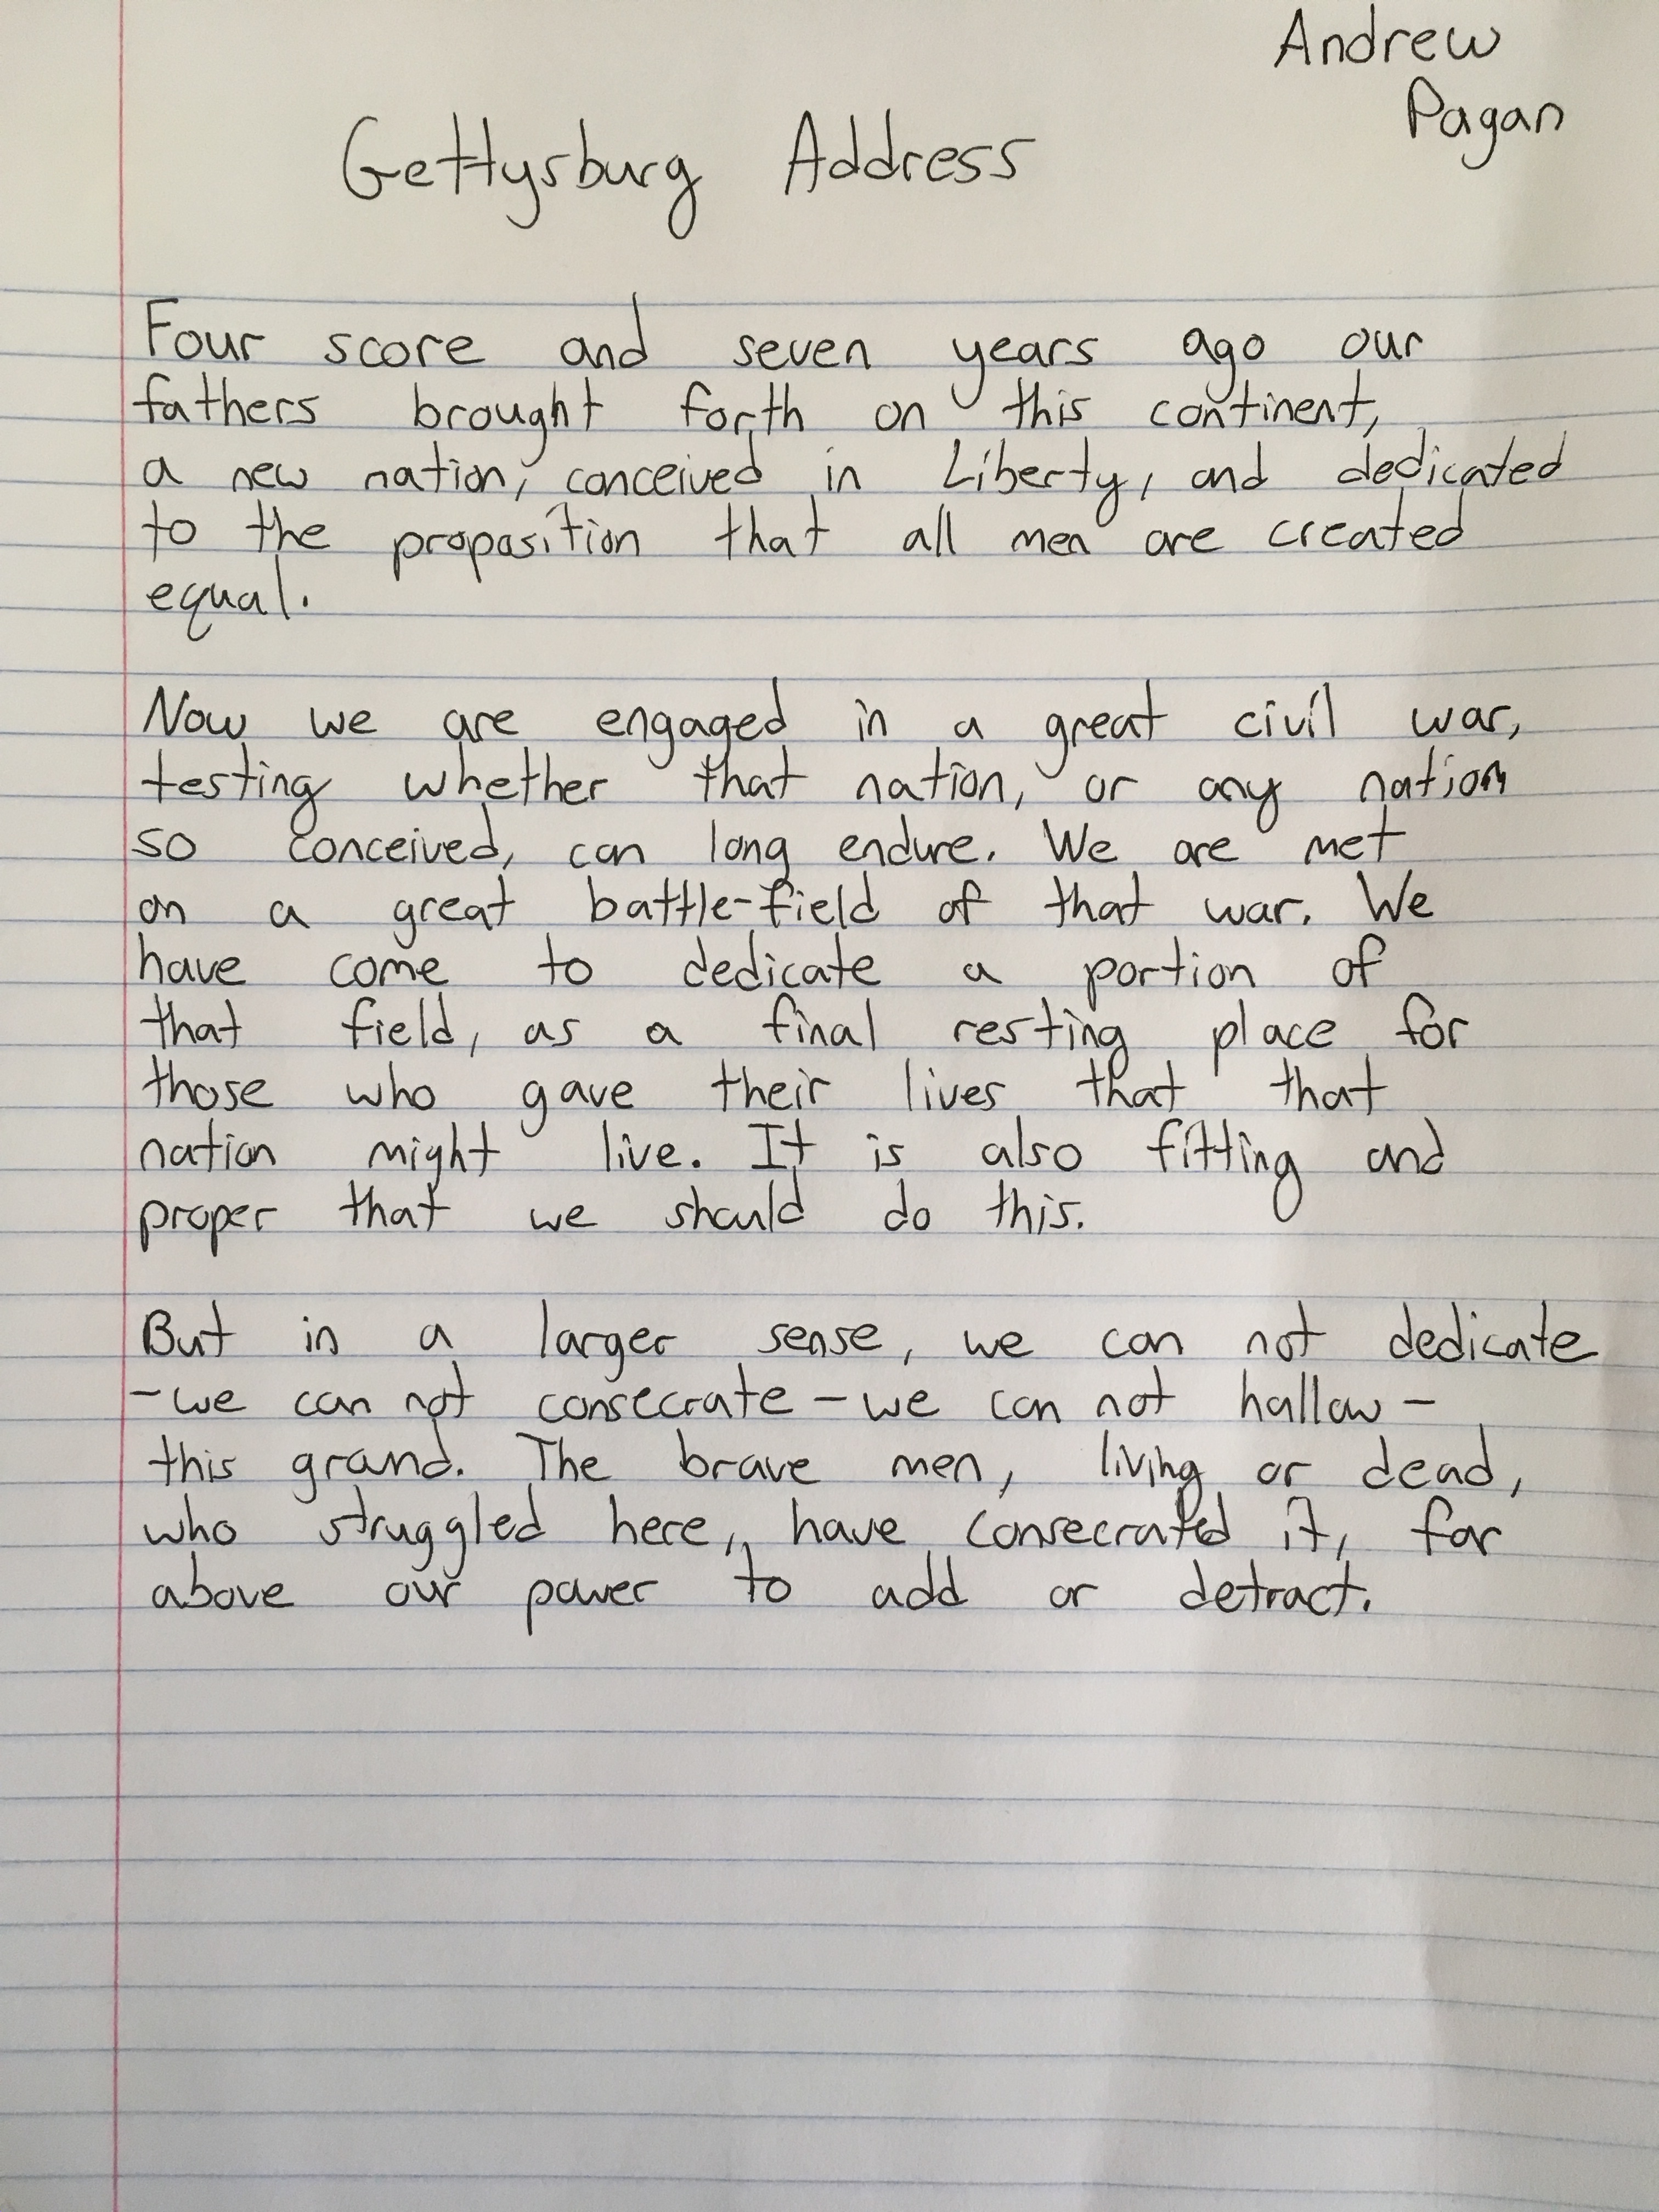 Andrew
Pagan
Gettysburg Address
Four score and seven years ago our
fathers brought forth on this continent,
a new nation, conceived in Liberty, and dedicated
to the proposition that all men are created
equal.
Now we are engaged in a great civil war,
testing whether that nation, or any nation
so conceived, can long endure. We are met
on a great battle-field of that war. We
have come to dedicate a portion of
that field, as a final resting place for
those who gave their lives that that
nation might live. It is also fitting and
proper that we should do this.
But in a larger sense, we can not dedicate
-we can not consecrate-we can not hallow-
this grand. The brave men, living or dead,
who struggled here, have consecrated it, far
above our power to add or detract.